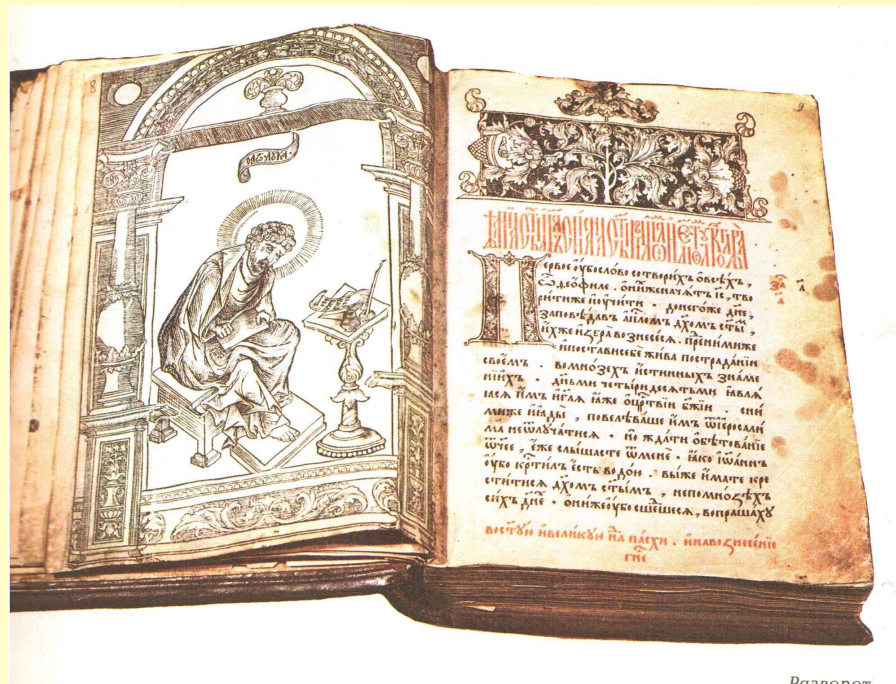 8
9
Первое ѹбо слово сотворихъ ѡ всѣхъ,
ѽ ѳеофиле. ѡ нихже начатъ і҃с, тво
рити же и учити. донегоже дн҃е,
заповѣдавъ ап҃лом дх҃омъ ст҃ы,
ихже избра вознесеся. пред ними же
и постави себе жива по страданїи
своемъ. во мнозѣхъ истинныхъ знаме
нїихъ. дн҃ьми четыридесятьми
ꙗвлѧ
ꙗся имъ и гл҃ѧ ꙗже о цр҃ствїи бж҃їи
сни
миже и ꙗды, повелѣваше имъ ѿ іеросали
ма не ѿлучатися. но ждати обѣтованїе
ѿчее еже слышасте ѿ мене. ꙗко іѡаннъ
ѹбо кр҃тилъ есть водою. вы же имате кре
ститися дх҃омъ ст҃ымъ, не по мнозѣхъ
сихъ дн҃е. они же ѹбо сшедшеся, вопрашаху
в ст҃ую и великую нл҃ пасхи. и на вознесенїе
гн҃е
Разворот